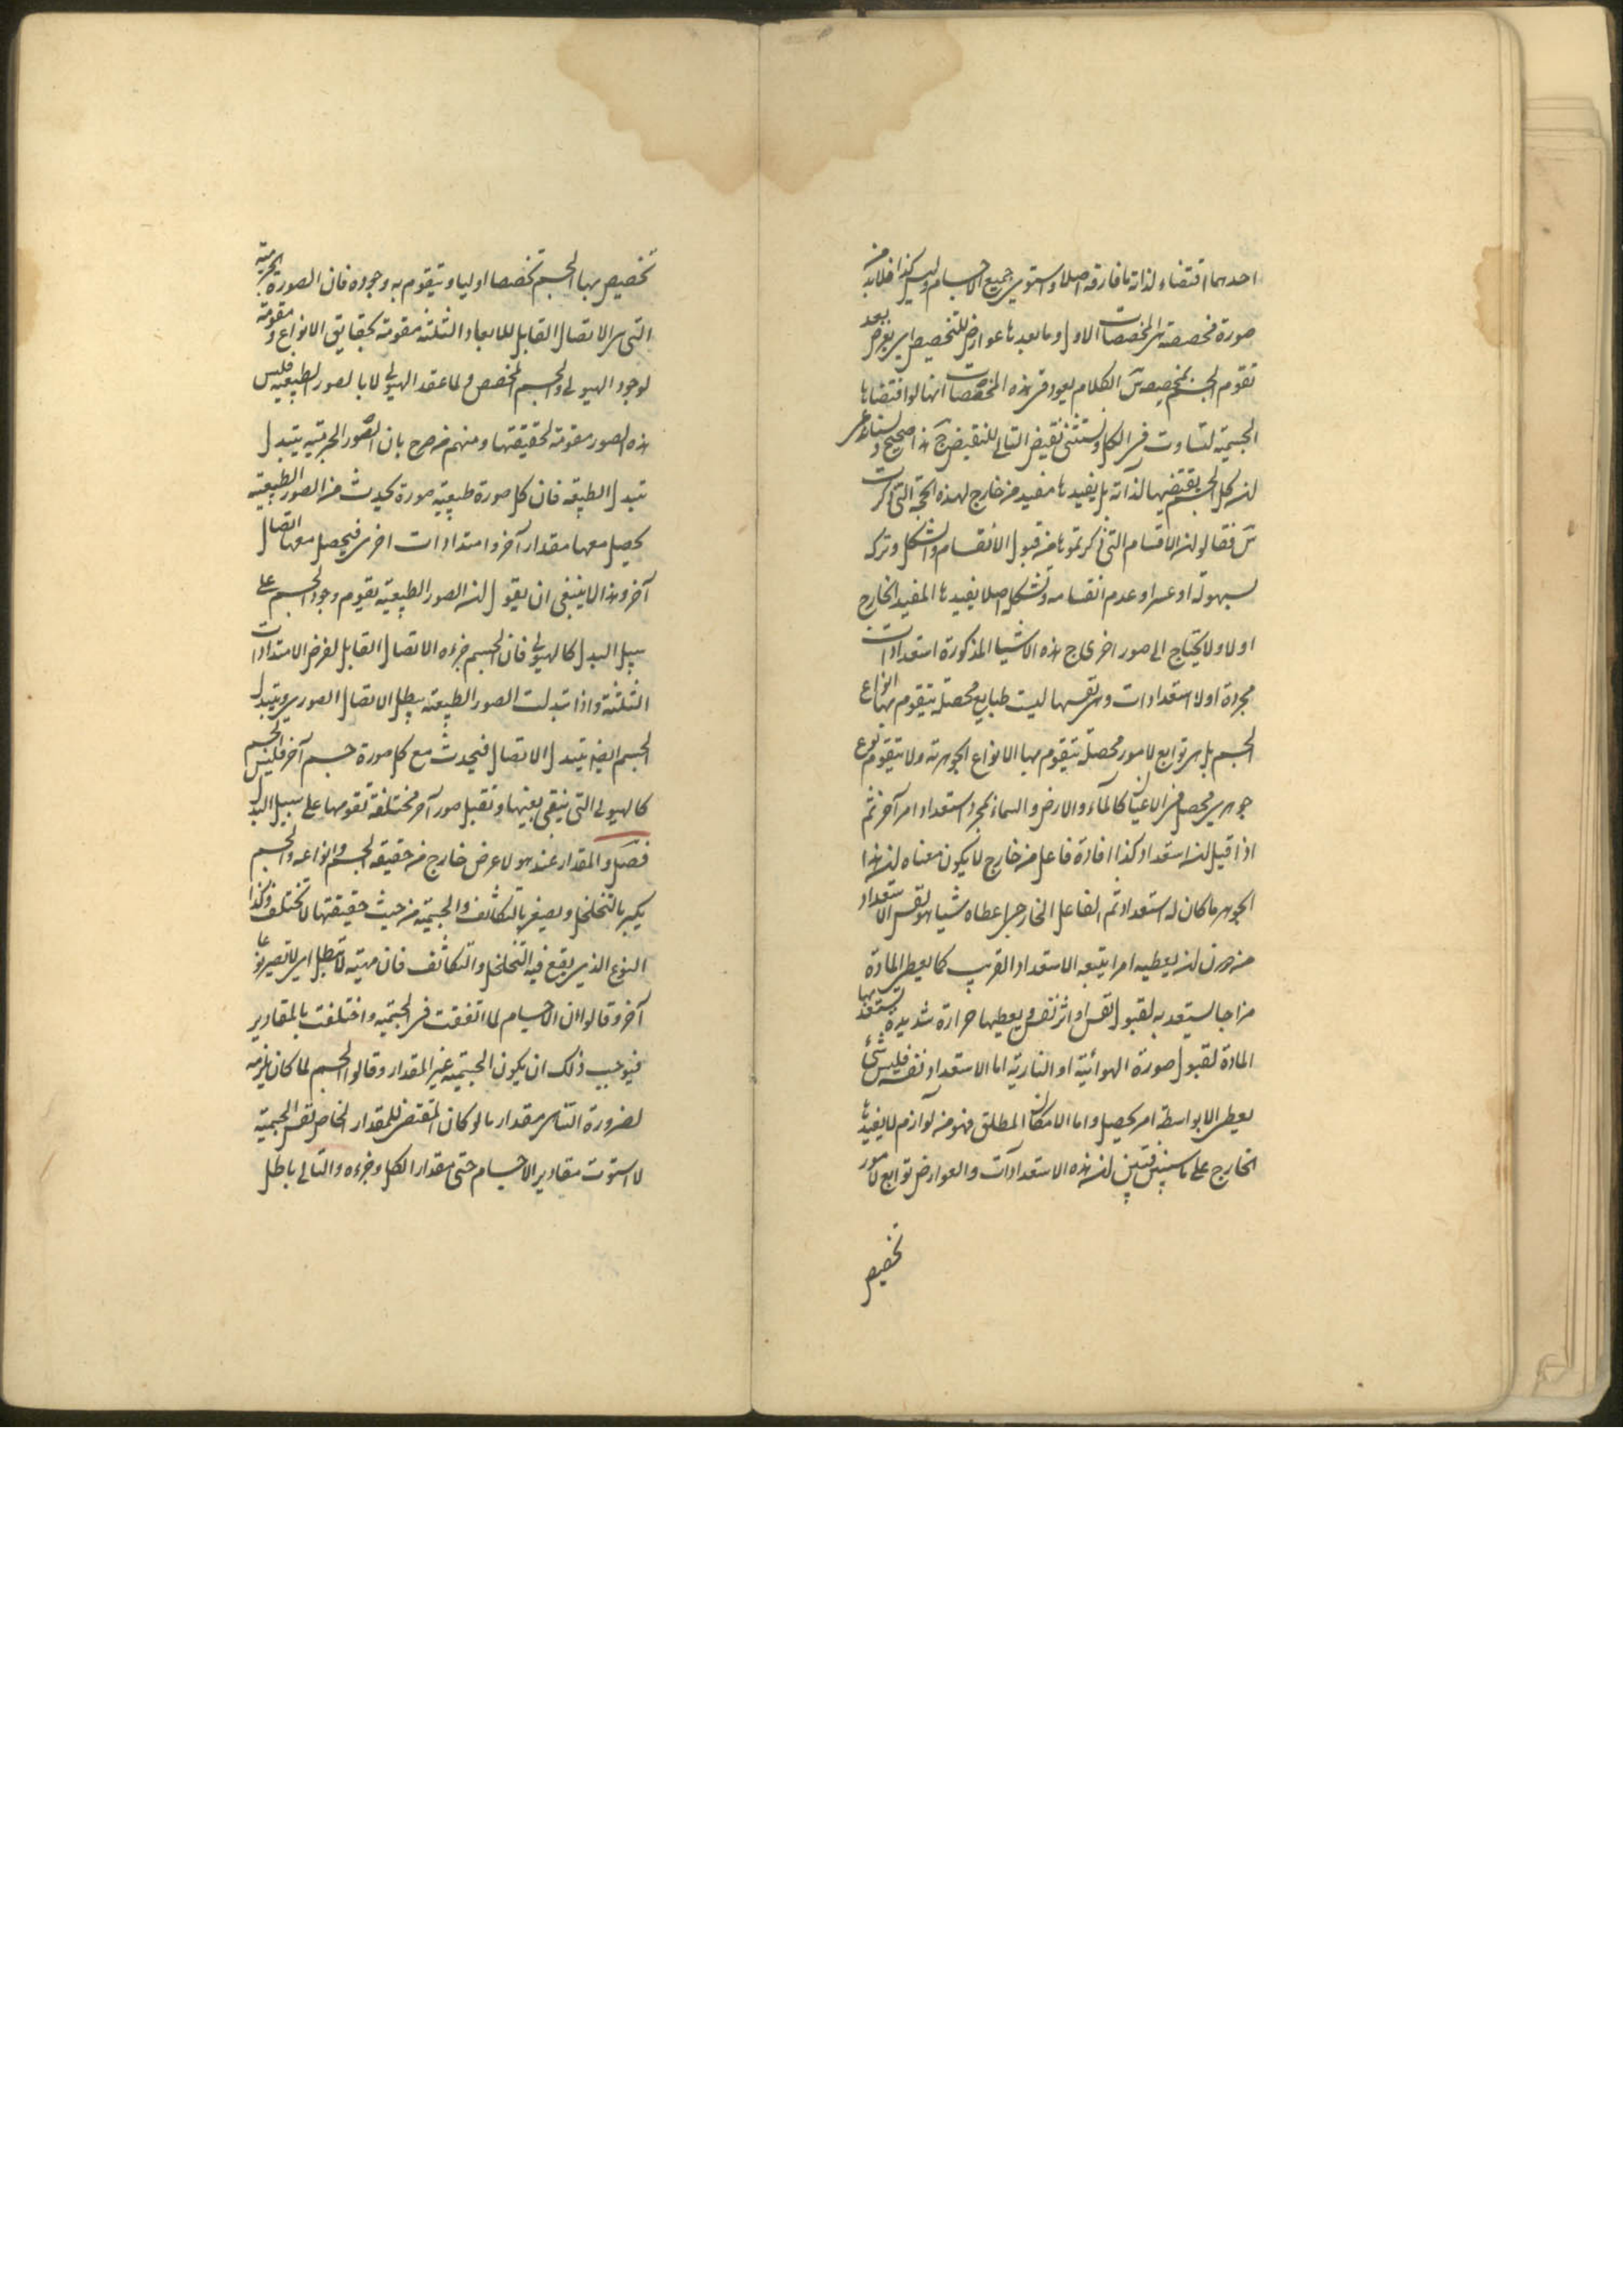 احدهما اقتضاء لذاته ما فارقه اصلا واستوى جميع الاجسام وليس كذا فلابد من
صورة مخصصة هى المخصصات الاول وما بعدها عوارض للتخصيص اى يعرض بعد
تقوم الجسم بمخصص س الكلام يعود فى هذه المخصصات انها لو اقتضاها
الجسمية لتساوت فى الكل ونستثنى نقيض التالى للنقيض ج هذا صحيح ولسنا على
ان كل الجسم يقتضيها لذاته بل يفيدها مفيد من خارج لهذه الحجة التى ذكرت
س فقالوا ان الاقسام التى ذكرتموها من قبول الانقسام والتشكل وتركه
بسهولة او عسر او عدم انقسامه وتشكله اصلا يفيدها المفيد الخارج
اولا ولا يحتاج الى صور اخرى ج هذه الاشيا المذكورة استعدادات
مجردة اولا استعدادات وهى نفسها ليست طبايع محصلة يتقوم بها انواع
الجسم بل هى توابع لامور محصلة يتقوم بها الانواع الجوهرية ولا يتقوم نوع
جوهرى محصل فى الاعيان كالماء والارض والسماء بمجرد استعداد امر آخر ثم
اذا قيل ان استعداد كذا افادة فاعل من خارج لا يكون معناه ان هذا
الجوهر ما كان له استعداد ثم الفاعل الخارجى اعطاه شيا هو نفس الاستعداد
من دون ان يعطيه امرا يتبعه الاستعداد القريب كما يعطى المادة
مزاجا يستعد به لقبول نفس او اثر نفس ويعطيها حرارة شديدة يستعد بها
المادة لقبول صورة الهوائية او النارية اما الاستعداد نفسه فليس شئ
يعطى الا بواسطة امر يحصل واما الامكان المطلق فهو من لوازم لا يفيدها
الخارج على ما سيتبين فتبين ان هذه الاستعدادات والعوارض توابع لامور
تخصيص
تخصيص بها الجسم تخصصا اوليا ويتقوم به وجوده فان الصورة الجرمية
التى هى الاتصال القابل للابعاد الثلثة مقومة بحقايق الانواع ومقومة
لوجود الهيولى والجسم المخصص ولما عقد الهيولى لا بالصور الطبيعية فليس
هذه الصور مقومة لحقيقتها ومنهم من صرح بان الصور الجرمية يتبدل
بتبدل الطبيعة فان كل صورة طبيعية صورة يحدث من الصور الطبيعية
يحصل معها مقدار آخر وامتدادات اخرى فيحصل معها اتصال
آخر وهذا لا ينبغى ان يقول ان الصور الطبيعية تقوم وجود الجسم على
سبيل البدل كالهيولى فان الجسم جزءه الاتصال القابل لفرض الامتدادات
الثلثة واذا تبدلت الصور الطبيعية يبطل الاتصال الصورى ويتبدل
الجسم ايضا بتبدل الاتصال فيحدث مع كل صورة جسم آخر فليس الجسم
كالهيولى التى يبقى بعينها وتقبل صور آخر مختلفة تقومها على سبيل البدل
فصل والمقدار عند هؤلا عرض خارج من حقيقة الجسم وانواعه والجسم
يكبر بالتخلخل ويصغر بالتكاثف والجسمية من حيث حقيقتها لا تختلف وكذا
النوع الذى يقع فيه التخلخل والتكاثف فان مهيته لا تبطل اى لا تصير نوعا
آخر وقالوا ان الاجسام لما اتفقت فى الجسمية واختلفت بالمقادير
فيوجب ذلك ان يكون الجسمية غير المقدار وقالوا الجسم لما كان يلزمه
لضرورة التناهى مقدار ما لو كان المقتضى للمقدار الخاص نفس الجسمية
لاستوت مقادير الاجسام حتى مقدار الكل وجزءه والتالى باطل